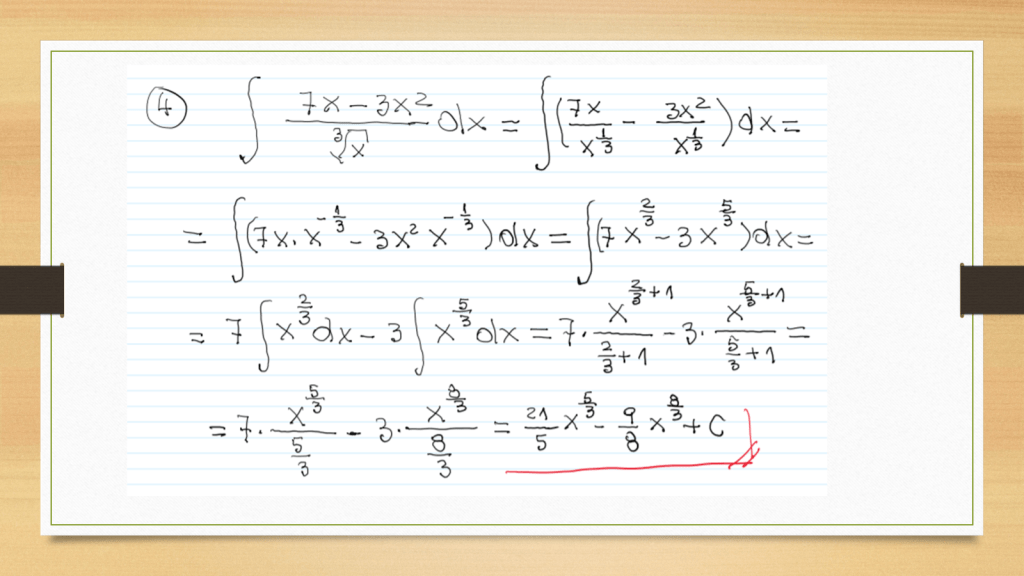 ④ ∫ (7x − 3x²)/∛x dx = ∫(7x/x^(1/3) − 3x²/x^(1/3))dx =
= ∫(7x·x^(-1/3) − 3x² x^(-1/3))dx = ∫(7x^(2/3) − 3x^(5/3))dx =
= 7∫x^(2/3)dx − 3∫x^(5/3)dx = 7·x^(2/3+1)/(2/3+1) − 3·x^(5/3+1)/(5/3+1) =
= 7·x^(5/3)/(5/3) − 3·x^(8/3)/(8/3) = 21/5 x^(5/3) − 9/8 x^(8/3) + C